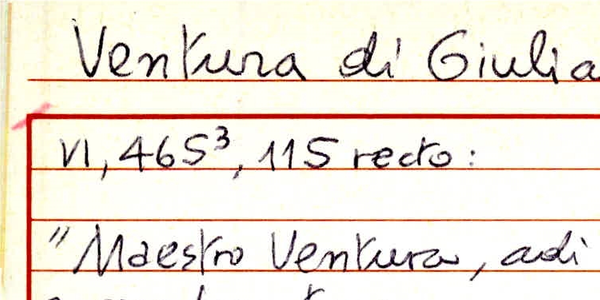 Ventura di Giulia
VI, 465³, 115 recto:
"Maestro Ventura, adì